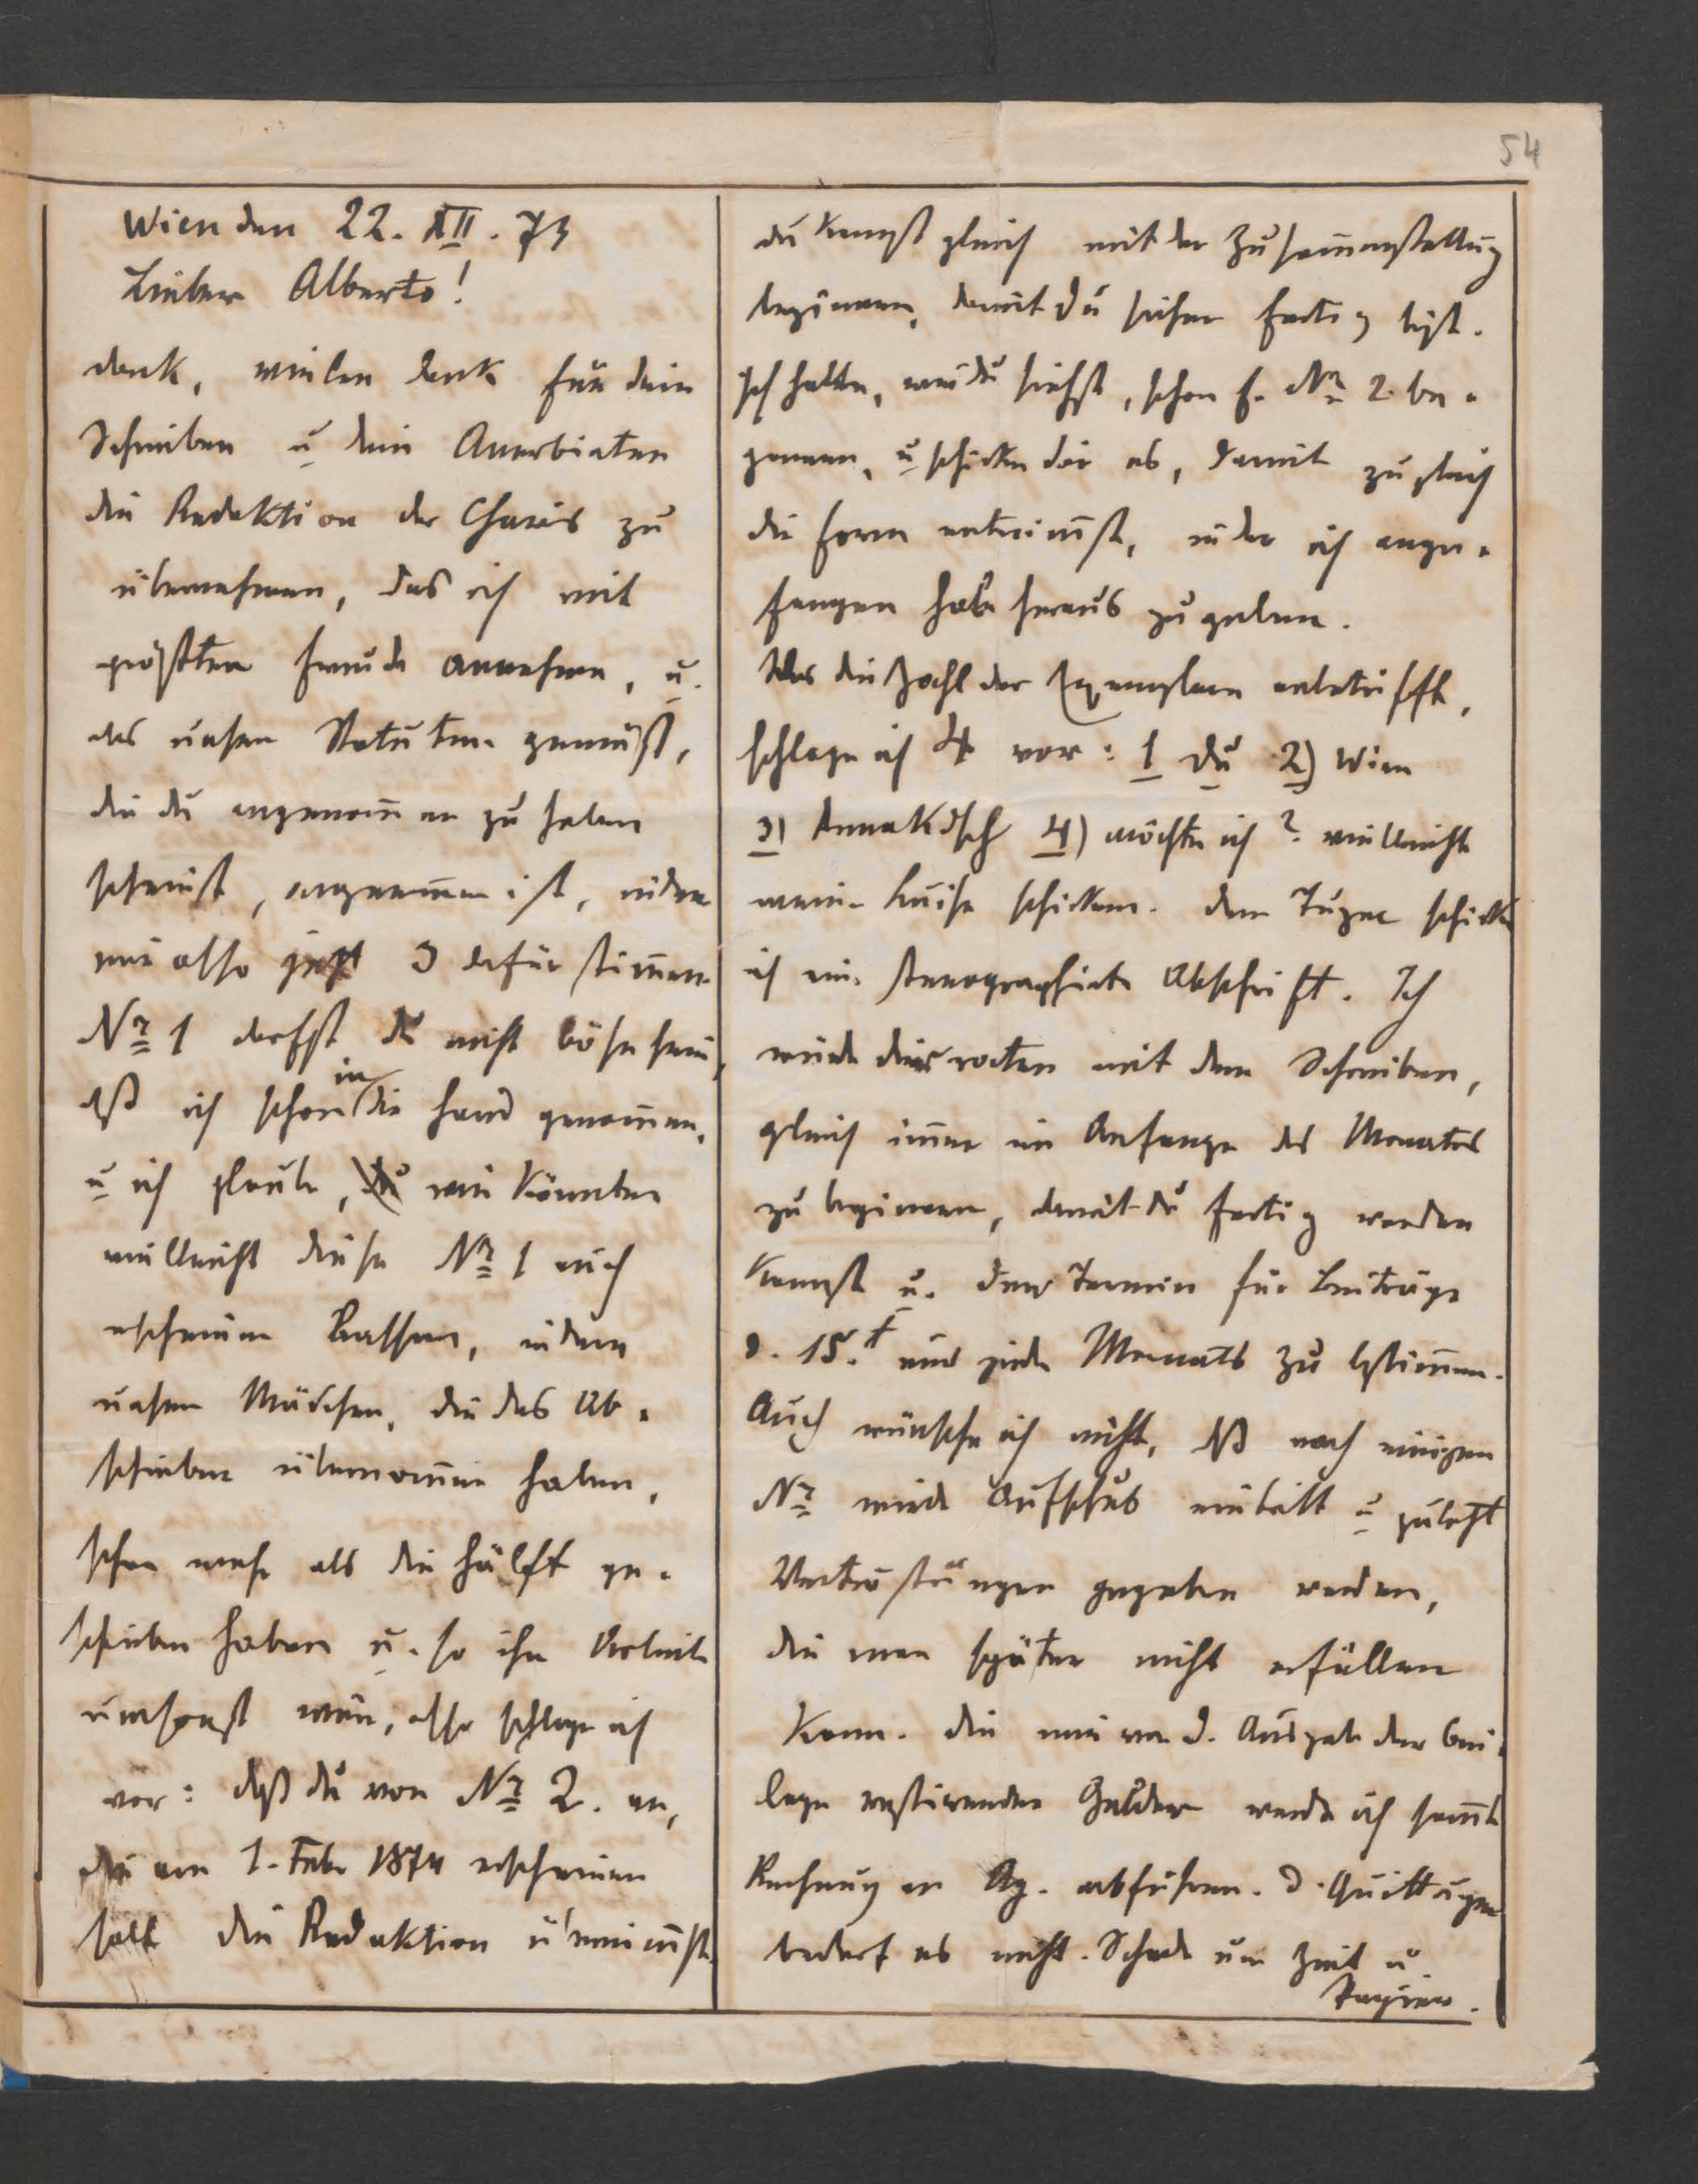 54
Wien den 22. XII. 73
Lieber Alberto!
dank, vielen dank für dein
Schreiben u dein Anerbieten
die Redaktion der Charis zu
übernehmen, das ich mit
größten Freude annehme, u.
das unsern Statuten gemäß,
die du angenom̅en zu haben
scheinst, angenom̅en ist, indem
wir also jetzt 3 dafür stim̅en.
Nr 1 darfst du nicht böse sein,
dß ich schon in die Hand genom̅en,
u ich glaube, wir könnten
vielleicht diese Nr 1 auch
erscheinen lassen, indem
unsere Mädchen, die das Ab-
schreiben übernom̅en haben,
schon mehr als die Hälfte ge-
schrieben haben u. so ihre Arbeit
umsonst wäre, also schlage ich
vor: daß du von Nr 2. an,
die am 1. Feb. 1874 erscheinen
soll die Redaktion übernim̅st.
du kannst gleich mit der Zusam̅enstellung
beginnen, damit du sicher fertig bist.
Ich hatte, wie du siehst, schon f. Nr 2. be-
gonnen, u schicke dir es, damit zugleich
die Form entnim̅st, in der ich ange-
fangen habe heraus zu geben.
Was die Zahl der Exemplare anbetrifft,
schlage ich 4 vor: 1 Du 2) Wien
3) 4) möchte ich? vielleicht
meine Luise schicken. dem Tuzar schicke
ich eine stenographirte Abschrift. Ich
würde dir raten mit dem Schreiben,
gleich im̅er im Anfange des Monates
zu beginnen, damit du fertig werden
kannst u. den Termin für Beiträge
d. 15.t eines jeden Monats zu bestim̅en.
Auch wünsche ich nicht, dß nach einigen
Nr wieder Aufschub eintritt u zuletzt
Vertröstungen gegeben werden,
die man später nicht erfüllen
kann. die mir von d. Ausgabe der Bei-
lage restirenden Gelder werde ich sam̅t
Rechnung an Ag. abführen. d. Quittungen
bedarf es nicht. Schade um Zeit u
Papier.